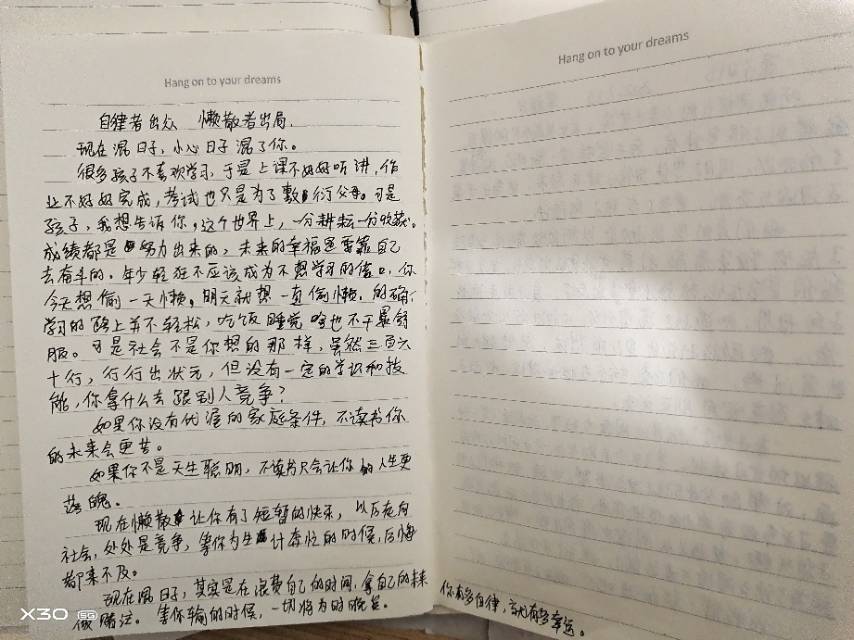 Hang on to your dreams
自律者出众 懒散者出局.
现在混日子, 小心日子混了你。
很多孩子不喜欢学习, 于是上课不好好听讲, 作
业不好好完成, 考试也只是为了敷衍父母。可是
孩子, 我想告诉你, 这个世界上, 一分耕耘一分收获。
成绩都是努力出来的, 未来的幸福还要靠自己
去奋斗的。年少轻狂不应该成为不想学习的借口, 你
今天想偷一天懒。明天就想一直偷懒。的确,
学习的路上并不轻松, 吃饭睡觉啥也不干最舒
服。可是社会不是你想的那样, 虽然三百六
十行, 行行出状元, 但没有一定的学识和技
能, 你拿什么去跟别人竞争?
如果你没有优渥的家庭条件, 不读书你
的未来会更苦。
如果你不是天生聪明, 不读书只会让你的人生更
落魄。
现在懒散让你有了短暂的快乐, 以后走向
社会, 处处是竞争, 等你为生计奔忙的时候, 后悔
都来不及。
现在混日子, 其实是在浪费自己的时间, 拿自己的未来
做赌注。等你输的时候, 一切将为时晚矣。
Hang on to your dreams
你有多自律, 就有多幸运。
X30 5G